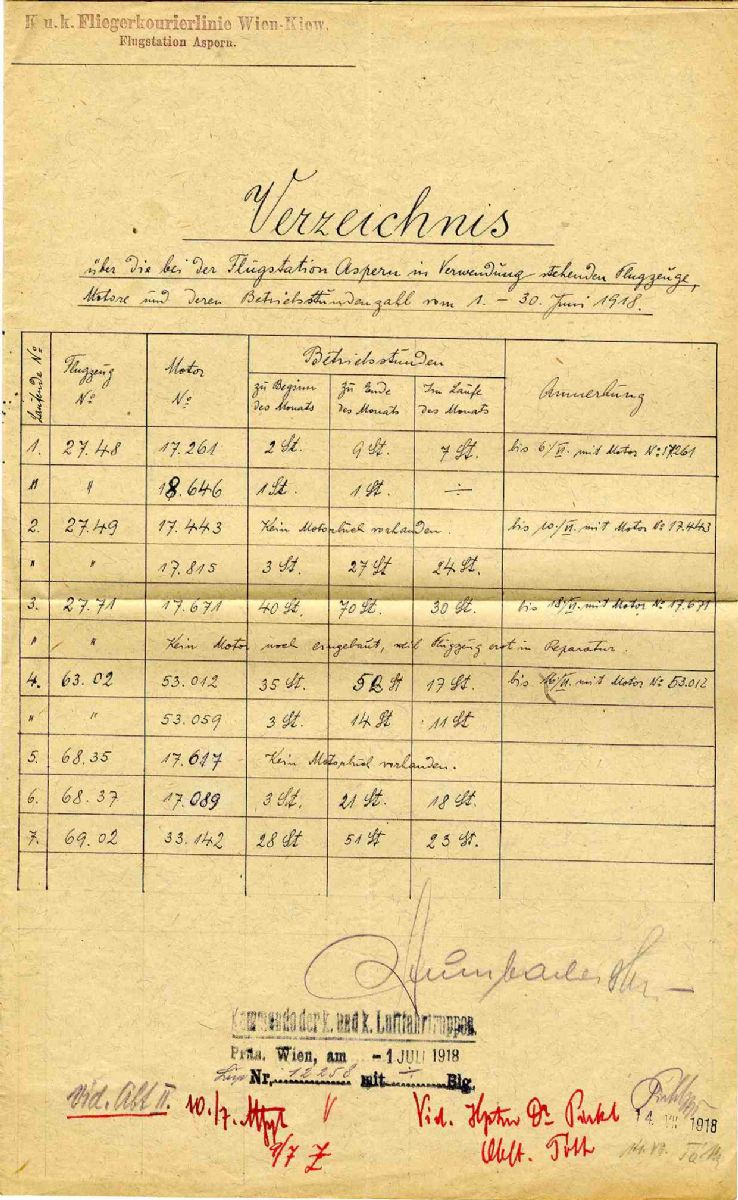 K. u. k. Fliegerkourierlinie Wien-Kiew.
Flugstation Aspern.
Verzeichnis
über die bei der Flugstation Aspern in Verwendung stehenden Flugzeuge,
Motore und deren Betriebsstundenzahl vom 1. – 30. Juni 1918.
Laufende No Flugzeug No Motor No Betriebsstunden Anmerkung
zu Beginn des Monats Zu Ende des Monats Im Laufe des Monats
1. 27.48 17.261 2 St. 9 St. 7 St. bis 6/VI. mit Motor No 17.261
" " 18.646 1 St. 1 St. ÷
2. 27.49 17.443 Kein Motorbuch vorhanden. bis 10./VI. mit Motor No 17.443
" " 17.815 3 St. 27 St 24 St.
3. 27.71 17.671 40 St. 70 St. 30 St. bis 18/VI. mit Motor No 17.671
" " Kein Motor noch eingebaut, weil Flugzeug erst in Reparatur.
4. 63.02 53.012 35 St. 52 St 17 St. bis 16/VI. mit Motor No 53.012
" " 53.059 3 St. 14 St 11 St
5. 68.35 17.617 Kein Motorbuch vorhanden.
6. 68.37 17.089 3 St. 21 St. 18 St.
7. 69.02 33.142 28 St 51 St 23 St.
Kommando der k. und k. Luftfahrtruppen.
Präs. Wien, am - 1 JULI 1918
Nr. 12258 mit ÷ Blg.
Vid. Abt II. 10./7. V Vid. Hptm Dr Pirkl
9/7 Obst. Tóth
14 VII 1918